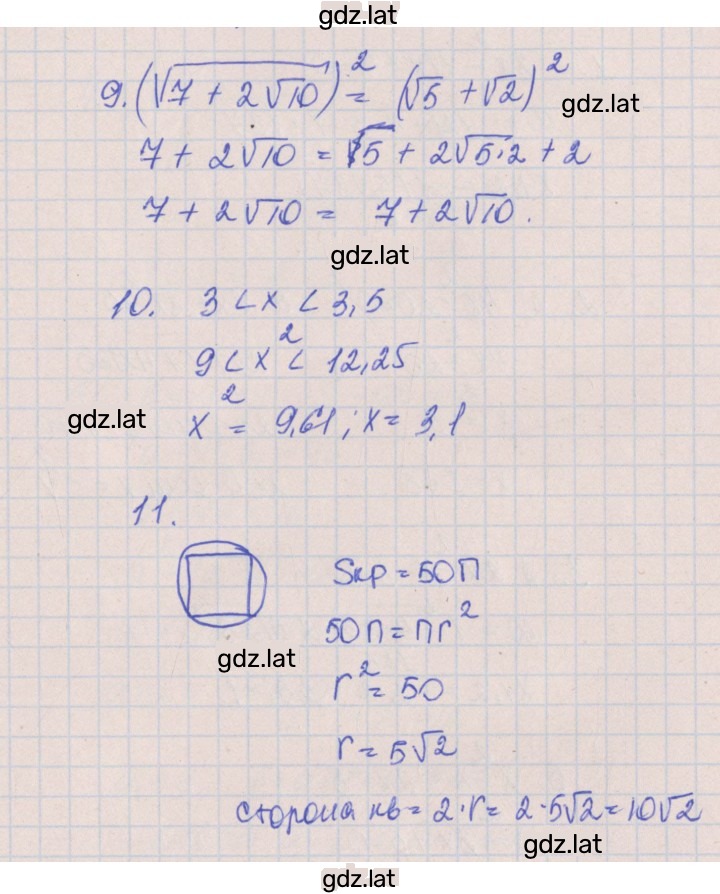 gdz.lat
9. (√7 + 2√10)² = (√5 + √2)²
gdz.lat
7 + 2√10 = 5 + 2√5·2 + 2
7 + 2√10 = 7 + 2√10.
gdz.lat
10. 3 < x < 3,5
9 < x² < 12,25
gdz.lat
x² = 9,61; x = 3,1
11.
Sкр = 50П
50П = Пr²
gdz.lat
r² = 50
r = 5√2
сторона кв = 2·r = 2·5√2 = 10√2
gdz.lat
gdz.lat